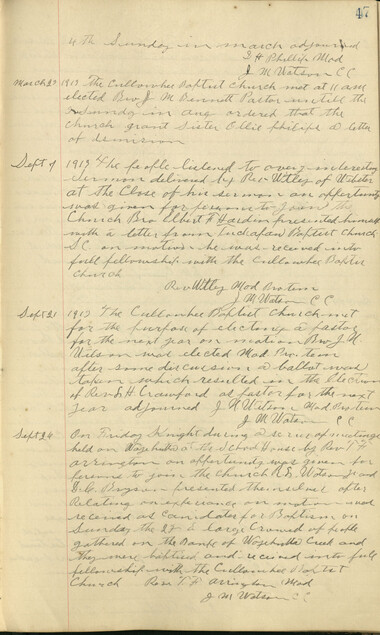 47
4th Sunday in march adjourned
S H Phillips Mod
J M Watson C C
March 23 1913 The Cullowhee Baptist Church met at 11 am
elected Bro J M Bennett Pastor untill the
Sunday in aug ordered that the
Church grant Sister Ollie philips a letter
of
Sept 7 1913 The people listened to a very interesting
sermon delivered by Rev Utley of Webster
at the Close of his sermon an oppertunity
was given for persons to join the
Church Bro Elbert F Hardin presented himself
with a letter from Baptist Church
SC on motion he was received into
full fellowship with the Cullowhee Baptist
church
Rev Utley Mod Protem
J M Watson C C
Sept 21 1913 The Cullowhee Baptist Church met
for the purpose of electing a pastor
for the next year on motion Bro J N
Wilson was elected Mod Protem
after some discussion a ballot was
taken which resulted in the Election
of Rev S H Crawford as pastor for the next
year adjourned J N Wilson Mod Protem
J M Watson C C
Sept 26 On Friday Knight during a series of meetings
held on at the School House by Rev T F
arrington an oppertunity was given for
persons to join the Church R S Watson Jr and
D C Bryson presented themselves after
Relating an experiance on motion was
received as Candidates for Baptism on
Sunday the 28 a large Crowd of people
gathered on the Banks of Creek and
they were baptised and received into full
fellowship with the Cullowhee Baptist
Church Rev T F Arrington Mod
J M Watson C C